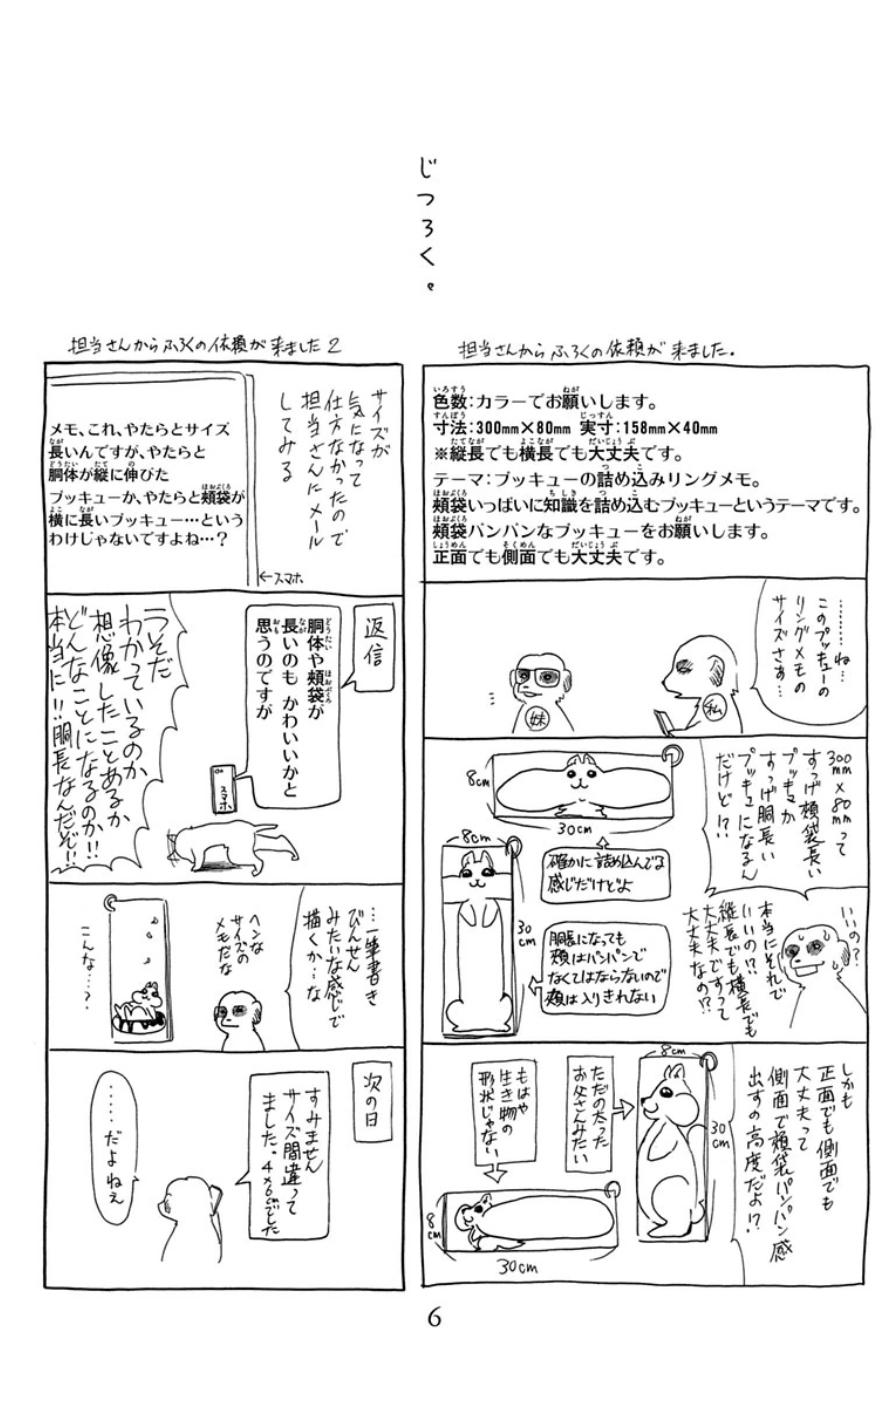 じつろく。
担当さんからふろくの依頼が来ました。
色数:カラーでお願いします。
寸法:300mm×80mm 実寸:158mm×40mm
※縦長でも横長でも大丈夫です。
テーマ:ブッキューの詰め込みリングメモ。
頬袋いっぱいに知識を詰め込むブッキューというテーマです。
頬袋パンパンなブッキューをお願いします。
正面でも側面でも大丈夫です。
………ね…
このブッキューの
リングメモの
サイズさぁ…
私
妹
300mm×80mmって
すっげ頬袋長い
ブッキューか
すっげ胴長い
ブッキューになるん
だけど!?
8cm
30cm
確かに詰め込んでる
感じだけどよ
8cm
30cm
胴長になっても
頬はパンパンで
なくてはならないので
頬は入りきれない
いいの?
本当にそれで
いいの!?
縦長でも横長でも
大丈夫ですって
大丈夫なの!?
しかも
正面でも側面でも
大丈夫って
側面で頬袋パンパン感
出すの高度だよ!?
8cm
30cm
ただの太った
お父さんみたい
もはや
生き物の
形状じゃない
8cm
30cm
担当さんからふろくの依頼が来ました2
サイズが
気になって
仕方なかったので
担当さんにメール
してみる
メモ、これ、やたらとサイズ
長いんですが、やたらと
胴体が縦に伸びた
ブッキューか、やたらと頬袋が
横に長いブッキュー…という
わけじゃないですよね…?
←スマホ
返信
胴体や頬袋が
長いのも かわいいかと
思うのですが
スマホ
うそだ
わかっているのか
想像したことあるか
どんなことになるのか!!
本当に!!胴長なんだぞ!!
…一筆書き
びんせん
みたいな感じで
描くか…な
ヘンな
サイズの
メモだな
こんな…?
次の日
すみません
サイズ間違って
ました。4×6cmでした
……だよねぇ
6